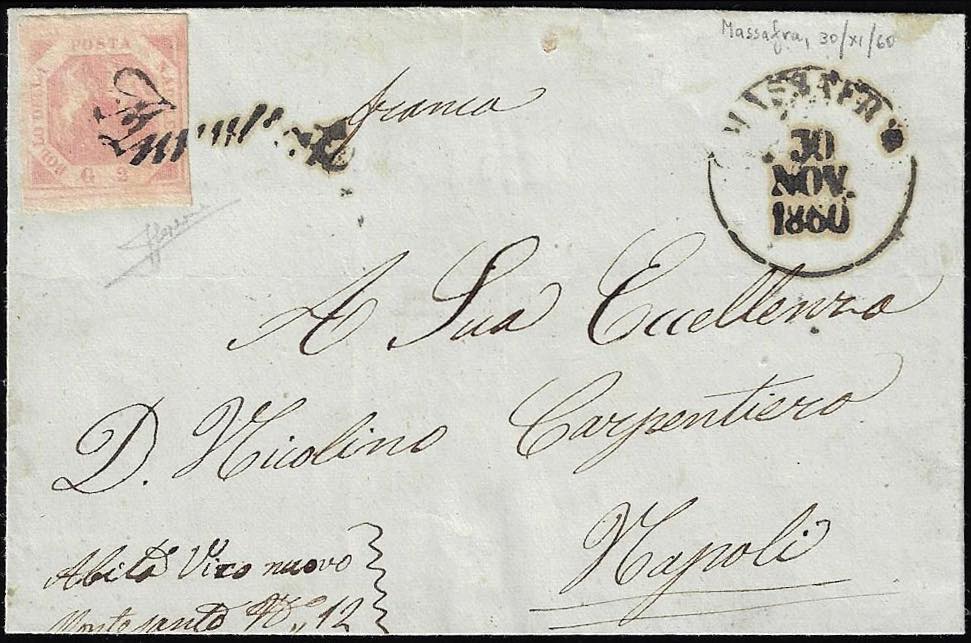 Massafra, 30/XI/60
POSTA NAPOLETANA
BOLLO DELLA
G 2
Annullato
franca
MASSAFRA
30
NOV.
1860
A Sua Eccellenza
D. Nicolino Carpentiero
Napoli
Abita Vico nuovo
Monte santo No. 12